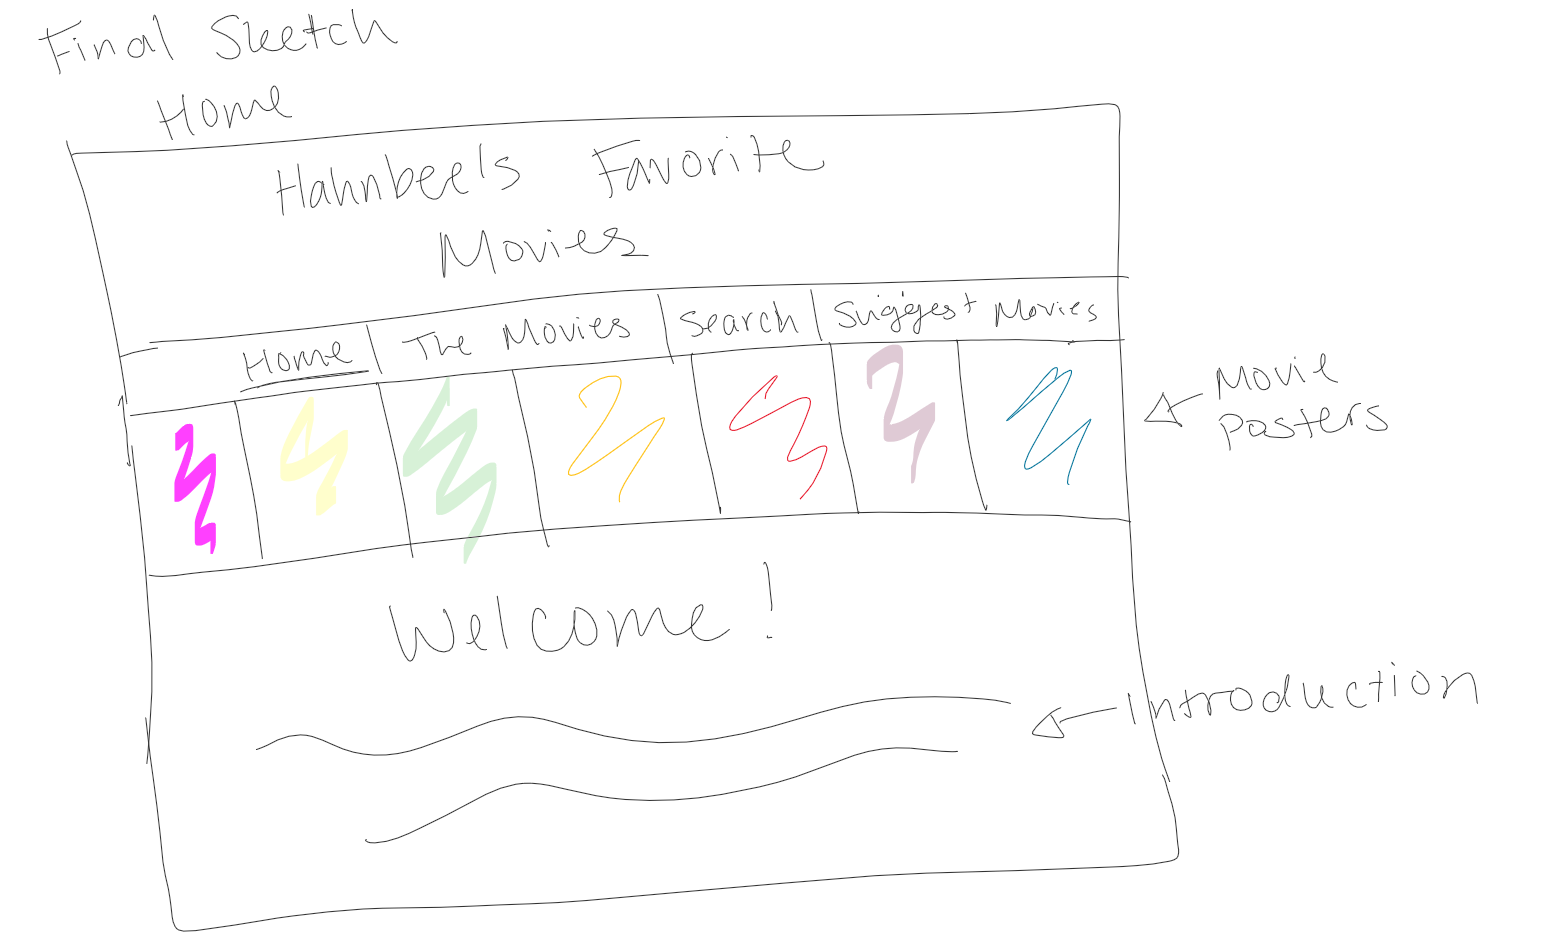 Final Sketch
Home
Hahnbee's Favorite
Movies
Home The Movies Search Suggest Movies
Movie
Posters
Welcome!
Introduction